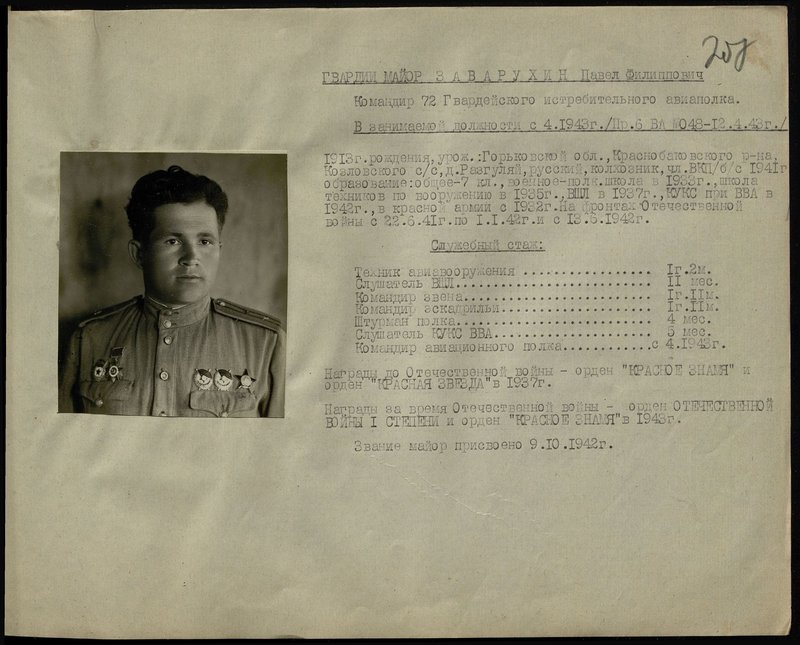 207
ГВАРДИИ МАЙОР ЗАВАРУХИН Павел Филиппович
Командир 72 Гвардейского истребительного авиаполка.
В занимаемой должности с 4.1943г./Пр.6 ВА №048-12.4.43г./
1913г.рождения,урож.:Горьковской обл.,Краснобаковского р-на,
Козловского с/с,д.Разгуляй,русский,колхозник,чл.ВКП/б/с 1941г
образование:общее-7 кл.,военное-полк.школа в 1933г.,школа
техников по вооружению в 1935г.,ВШЛ в 1937г.,КУКС при ВВА в
1942г.,в красной армии с 1932г.На фронтах Отечественной
войны с 22.6.41г.по 1.1.42г.и с 13.6.1942г.
Служебный стаж:
Техник авиавооружения ................ 1г.2м.
Слушатель ВШЛ......................... 11 мес.
Командир звена........................ 1г.11м.
Командир эскадрильи................... 1г.11м.
Штурман полка......................... 4 мес.
Слушатель КУКС ВВА.................... 5 мес.
Командир авиационного полка...........с 4.1943г.
Награды до Отечественной войны - орден "КРАСНОЕ ЗНАМЯ" и
орден "КРАСНАЯ ЗВЕЗДА"в 1937г.
Награды за время Отечественной войны - орден ОТЕЧЕСТВЕННОЙ
ВОЙНЫ I СТЕПЕНИ и орден "КРАСНОЕ ЗНАМЯ"в 1943г.
Звание майор присвоено 9.10.1942г.